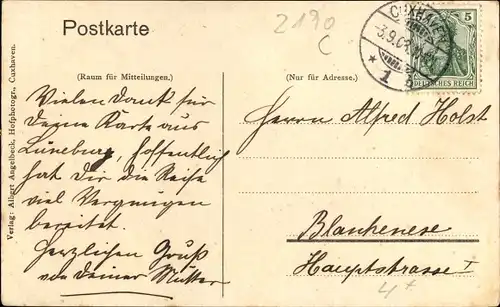 Postkarte
2190
C
CUXHAVEN
-3.9.0
* 1 b
5
DEUTSCHES REICH
(Raum für Mitteilungen.)
(Nur für Adresse.)
Vielen Dank für
Deine Karte aus
Lüneburg, hoffentlich
hat Dir die Reise
viel Vergnügen
bereitet.
Herzlichen Gruß
von Deiner Mutter
Herrn Alfred Holst
Blankenese
Hauptstrasse I
4+
Verlag: Albert Angelbeck, Hofphotogr., Cuxhaven.